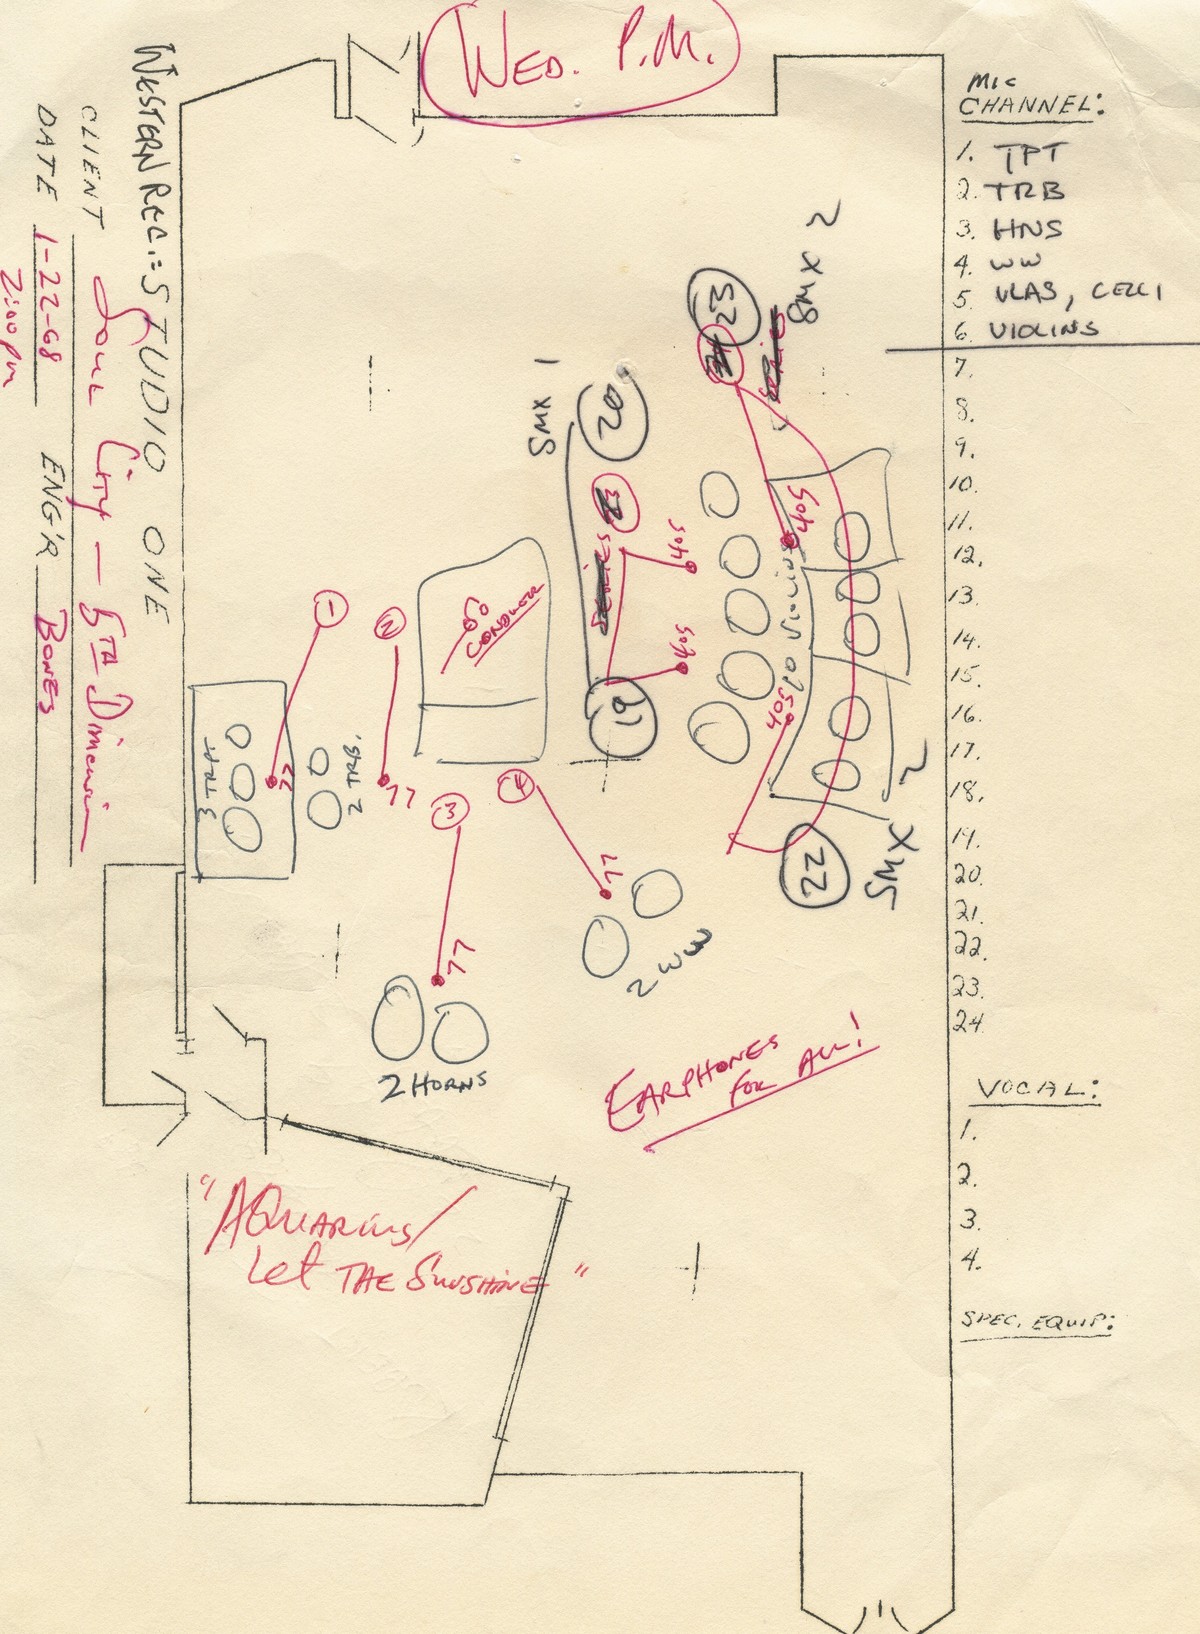 WED. P.M.
WESTERN REC.: STUDIO ONE
CLIENT Soul City — 5TH Dimension
DATE 1-22-68 ENG'R BONES
2:00 PM
MIC
CHANNEL:
1. TPT
2. TRB
3. HNS
4. WW
5. VLAS, CELLI
6. VIOLINS
7.
8.
9.
10.
11.
12.
13.
14.
15.
16.
17.
18.
19.
20.
21.
22.
23.
24.
VOCAL:
1.
2.
3.
4.
SPEC. EQUIP:
SMX 2
23
SMX 1
20
SERIES
SERIES
40S
40S
40S
40S
10 VIOLINS
19
22
SMX 2
CONDUCTOR
1
2
3
4
3 TRPT
77
2 TRB.
77
77
77
2 WW
2 HORNS
EARPHONES
FOR ALL!
"AQUARIUS/
Let THE SUNSHINE"